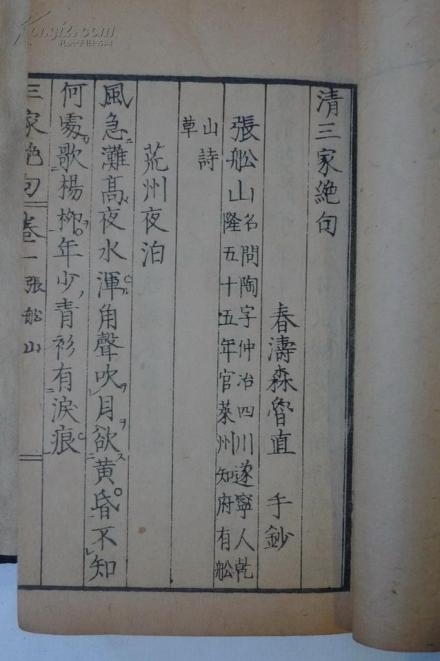 清三家絶句
春濤森魯直 手鈔
張船山名問陶字仲冶四川遂寧人乾
隆五十五年官萊州知府有船
山詩
草
荒州夜泊
風急灘高夜水渾角聲吹月欲黃昏不知
何處歌楊柳年少青衫有淚痕
三家絶句 卷一 張船山
Kongfz.com
孔夫子旧书网